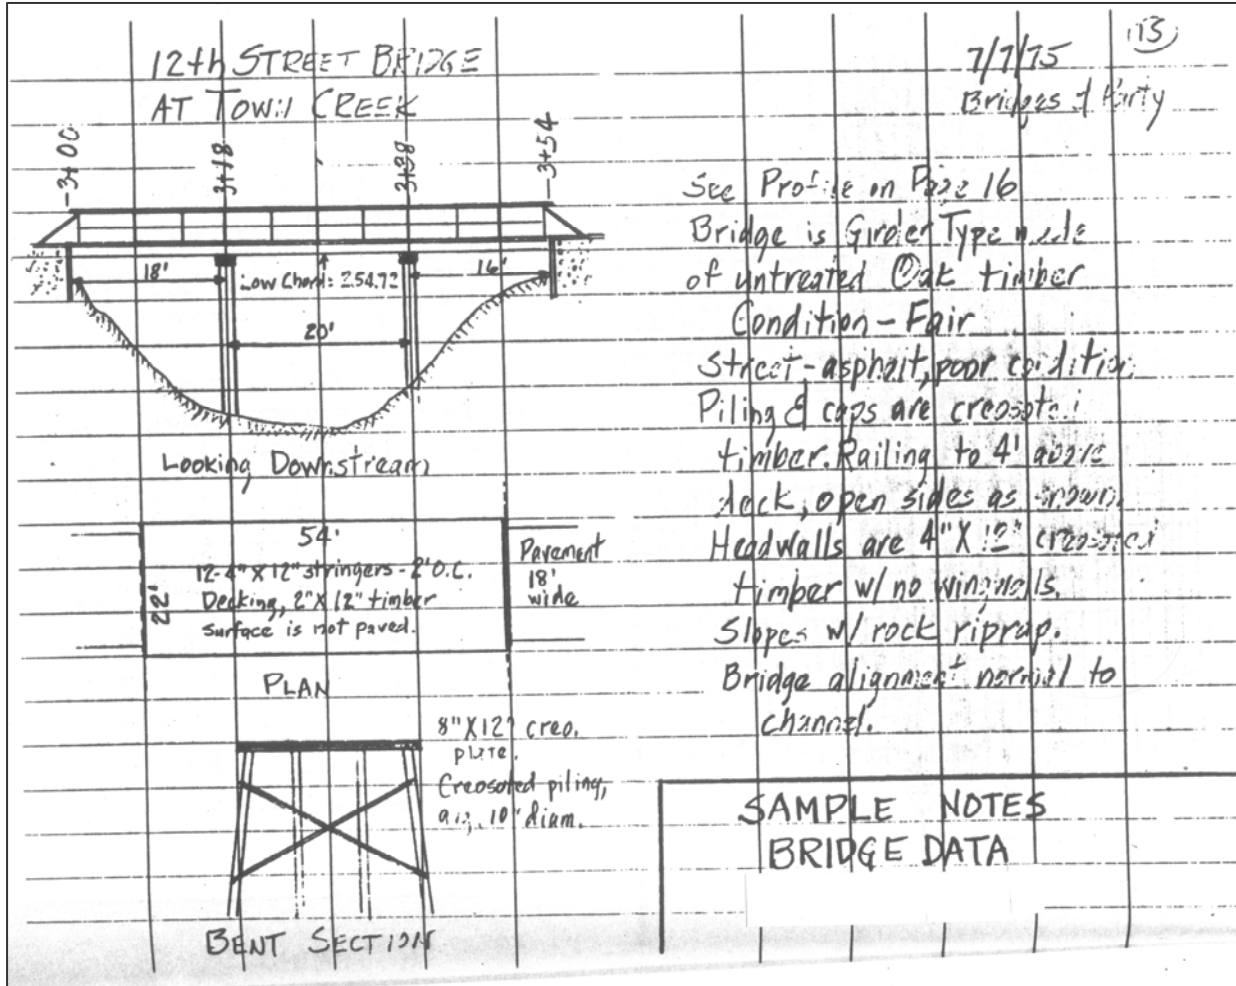 12th STREET BRIDGE
AT TOWN CREEK
7/7/75
Bridges & Party
3+00
3+18
3+38
3+54
18'
Low Chord: 254.72
16'
20'
Looking Downstream
54'
22'
12-4"X12" stringers-2'O.C.
Decking, 2"X12" timber
Surface is not paved.
Pavement
18'
wide
PLAN
8"X12" creo.
plate.
Creosoted piling,
10" diam.
BENT SECTION
See Profile on Page 16
Bridge is Girder Type made
of untreated Oak timber
Condition - Fair
Street-asphalt, poor condition
Piling & caps are creosoted
timber. Railing to 4' above
deck, open sides as shown.
Headwalls are 4"X12" creosoted
timber w/ no wingwalls.
Slopes w/ rock riprap.
Bridge alignment normal to
channel.
SAMPLE NOTES
BRIDGE DATA